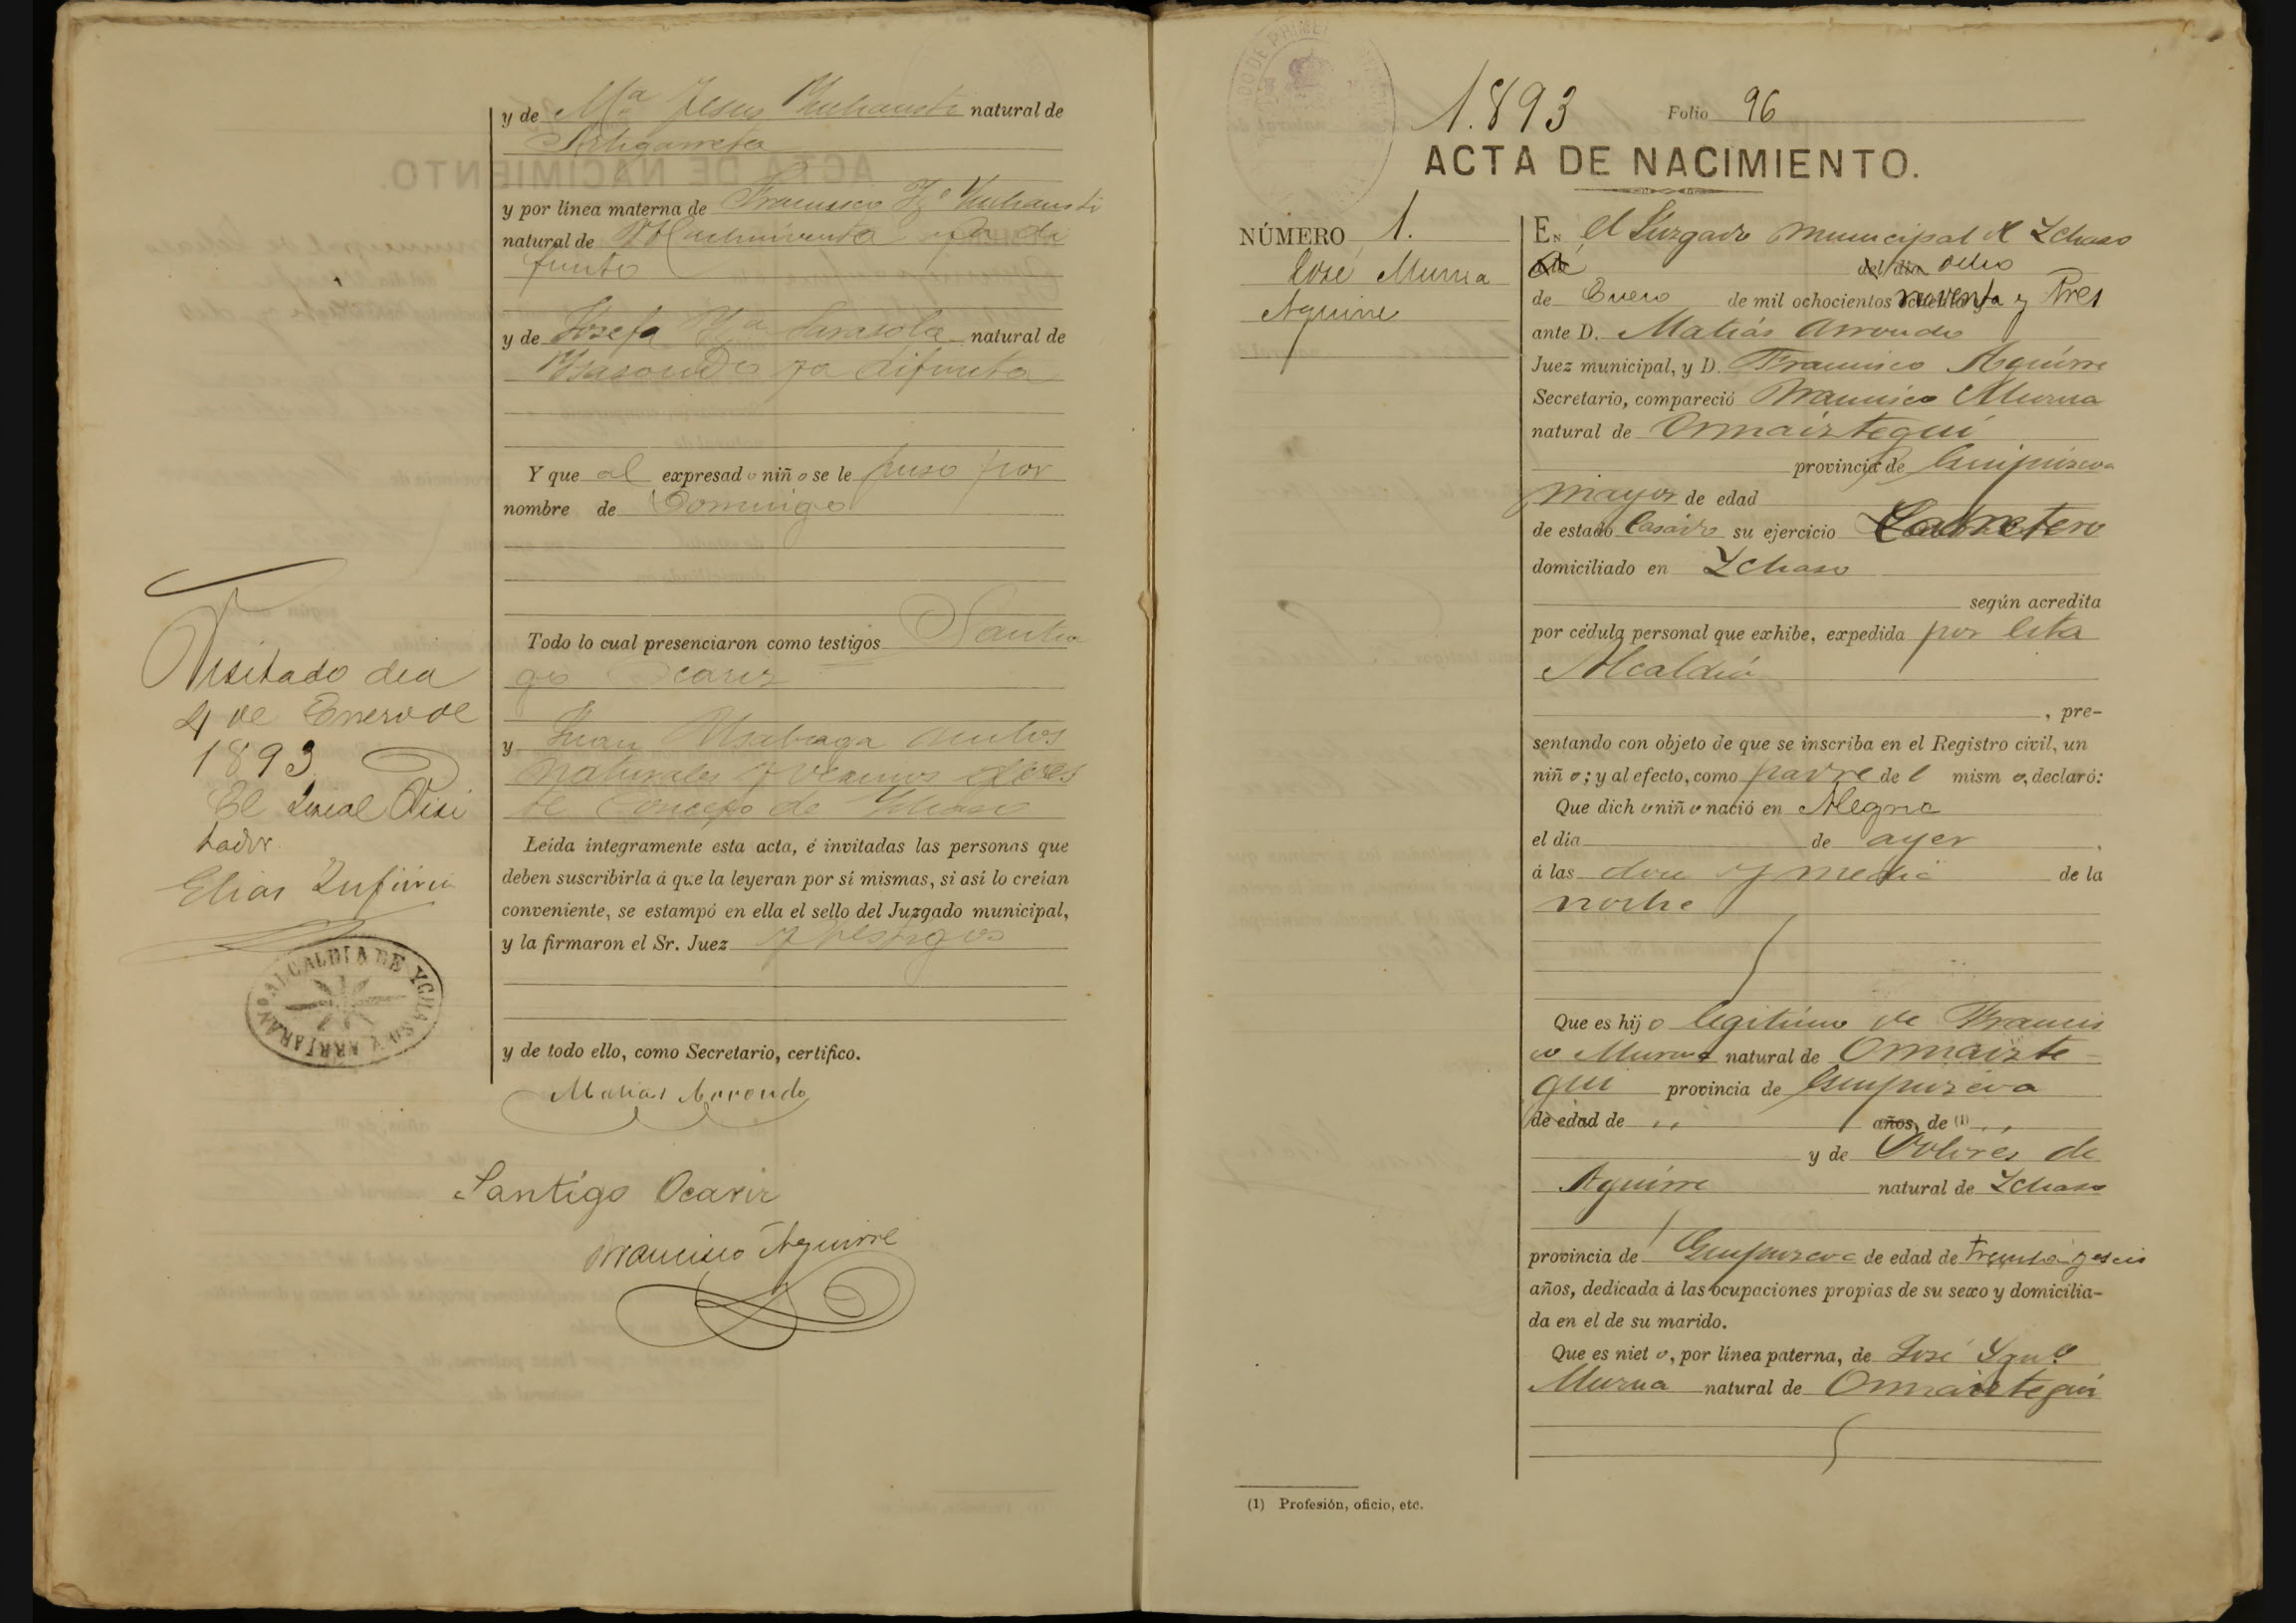 y de Mª Jesus natural de
y por línea materna de Francisco
natural de ya di
funto
y de Josefa Mª Sarasola natural de
ya difunta
Y que al expresado niño se le puso por
nombre de Domingo
Todo lo cual presenciaron como testigos Santia
go Ocariz
y Juan
naturales y vecinos
de Concejo de Ychaso
Leída íntegramente esta acta, é invitadas las personas que
deben suscribirla á que la leyeran por sí mismas, si así lo creían
conveniente, se estampó en ella el sello del Juzgado municipal,
y la firmaron el Sr. Juez y testigos
y de todo ello, como Secretario, certifico.
Matias Arrondo
Santigo Ocariz
Francisco Aguirre
Visitado dia
4 de Enero de
1893
El Visi
tador
Elias
ALCALDIA DE YCHASO Y ARRIARAN
1.893 Folio 96
ACTA DE NACIMIENTO.
NÚMERO 1.
José Murua
Aguirre
En el Juzgado municipal de Ychaso
del día ocho
de Enero de mil ochocientos noventa y tres
ante D. Matias Arrondo
Juez municipal, y D. Francisco Aguirre
Secretario, compareció Francisco Murua
natural de Ormaiztegui
provincia de Guipúzcoa
mayor de edad
de estado Casado su ejercicio Carretero
domiciliado en Ychaso
según acredita
por cédula personal que exhibe, expedida por esta
Alcaldia
, pre-
sentando con objeto de que se inscriba en el Registro civil, un
niño; y al efecto, como padre del mismo, declaró:
Que dicho niño nació en Alegria
el día de ayer,
á las doce y media de la
noche
Que es hijo legitimo de Francis
co Murua natural de Ormaizte
gui provincia de Guipuzcoa
de edad de ,, años, de (1) ,,
y de Dolores de
Aguirre natural de Ychaso
provincia de Guipuzcoa de edad de treinta y seis
años, dedicada á las ocupaciones propias de su sexo y domicilia-
da en el de su marido.
Que es nieto, por línea paterna, de José Ygnº
Murua natural de Ormaiztegui
(1) Profesión, oficio, etc.